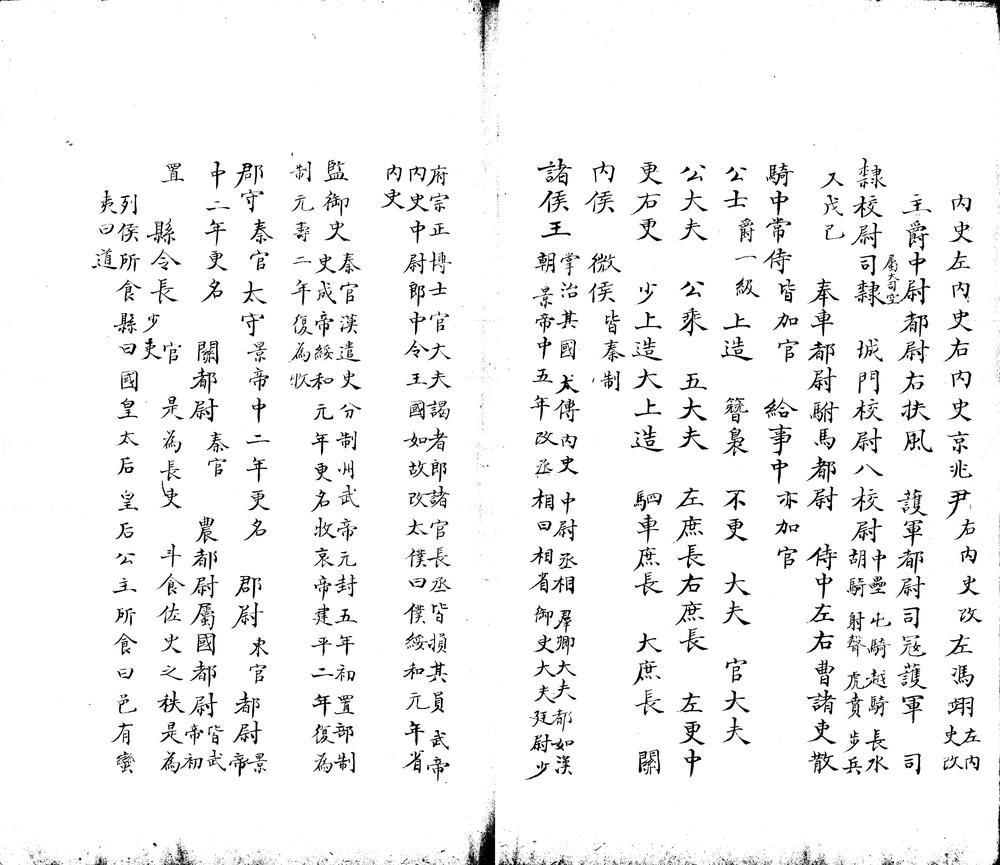 內史左內史右內史京兆尹右內史改左馮翊左內史改
主爵中尉都尉右扶風　護軍都尉司冦護軍　司
隸校尉司隸屬大司空　城門校尉八校尉中壘屯騎越騎長水胡騎射聲虎賁步兵
又戊己　奉車都尉駙馬都尉　侍中左右曹諸吏散
騎中常侍皆加官　給事中亦加官
公士爵一級上造　簪裊　不更　大夫　官大夫
公大夫　公乘　五大夫　左庶長右庶長　左更中
更右更　少上造大上造　駟車庶長　大庶長　關
內侯　微侯皆秦制
諸侯王掌治其國太傅內史中尉丞相羣卿大夫都如漢
朝景帝中五年改丞相曰相省御史大夫廷尉少
府宗正博士官大夫謁者郎諸官長丞皆損其員武帝
內史中尉郎中令王國如故改太僕曰僕綏和元年省
內史
監御史秦官漢遣史分制州武帝元封五年初置部制
史成帝綏和元年更名牧哀帝建平二年復為
制元壽二年復為牧
郡守秦官太守景帝中二年更名　郡尉末官都尉景帝
中二年更名　關都尉秦官　農都尉屬國都尉皆武帝初
置　縣令長少吏官是為長吏　斗食佐史之秩是為
列侯所食縣曰國皇太后皇后公主所食曰邑有蠻
夷曰道